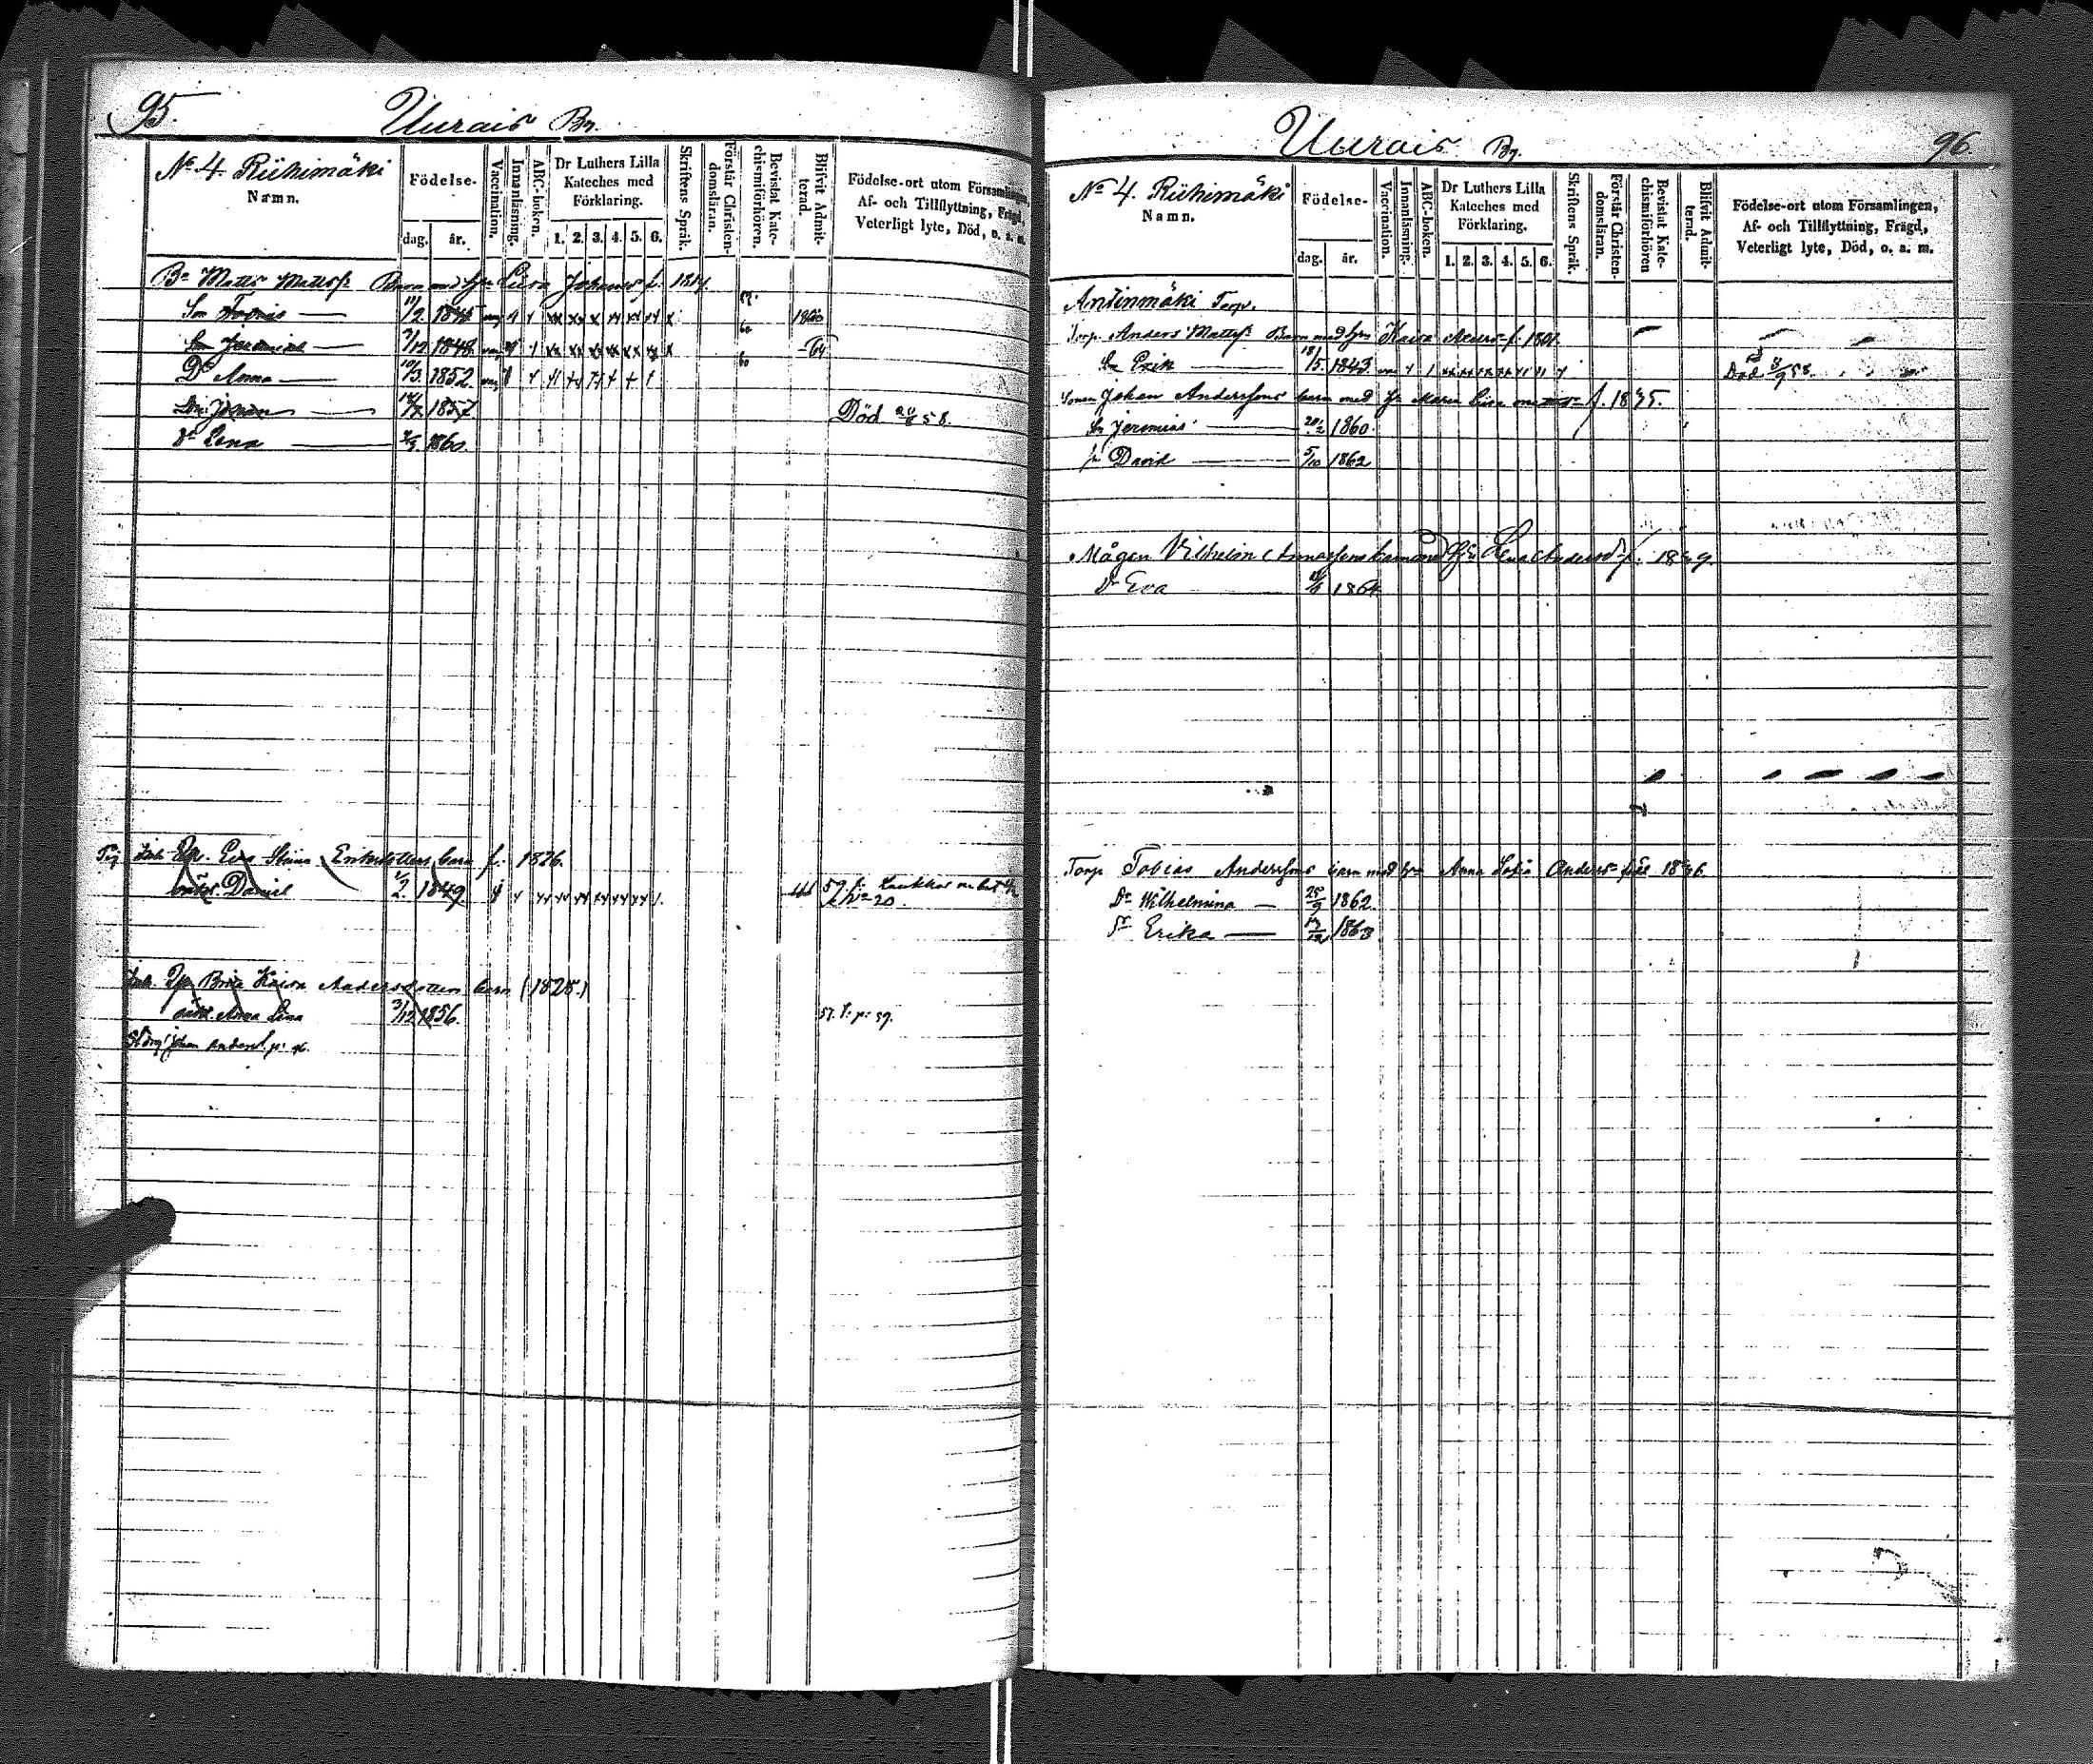 95.
Uurais By.
No 4 Riihimäki
Namn.
Födelse-
dag. år.
Vaccination.
Innanläsning.
ABC-boken.
Dr Luthers Lilla
Kateches med
Förklaring.
1. 2. 3. 4. 5. 6.
Skriftens Språk.
Förstår Christen-
domsläran.
Bevistat Kate-
chismiförhören.
Blifvit Admit-
terad.
Födelse-ort utom Församlingen,
Af- och Tillflyttning, Frägd,
Veterligt lyte, Död, o. a. m.
Bn Matts Mattss Barn med hu Lisa Johansd f. 1814.
1860
Sn Jeremias 7/12 1848 -64
Dr Anna 10/3 1852
Sn Johan 1857 Död 24/6 58.
Dr Lena 1860.
Inh. Eva Stina Eriksdotters barn f. 1826.
oäkt. Daniel 1/2 1849
Inh. Brita Kaisa Andersdotters barn (1828.)
oäkt. Anna Lisa 3/12 1856. 57. f. p. 59.
Johan Anderss. p. 96.
Uurais By.
96.
No 4. Riihimäki
Namn.
Födelse-
dag. år.
Vaccination.
Innanläsning.
ABC-boken.
Dr Luthers Lilla
Kateches med
Förklaring.
1. 2. 3. 4. 5. 6.
Skriftens Språk.
Förstår Christen-
domsläran.
Bevistat Kate-
chismiförhören
Blifvit Admit-
terad.
Födelse-ort utom Församlingen,
Af- och Tillflyttning, Frägd,
Veterligt lyte, Död, o. a. m.
Antinmäki Torp.
Torp. Anders Mattss Barn med hu Kaisa f. 1801.
Sn Erik 18/5 1843 Död 8/9 58.
Sonen Johan Anderssons barn med hu Maria Lisa f. 1835.
Sn Jeremias 20/2 1860.
Sn David 5/10 1862
Mågen Vilhelm barn med hu Lena Andersd f. 1839.
Dr Eva 1864
Torp Tobias Anderssons barn med hu Anna Sofia Andersd född 1836
Dr Wilhelmina 25/9 1862.
Dr Erika 17/12 1863